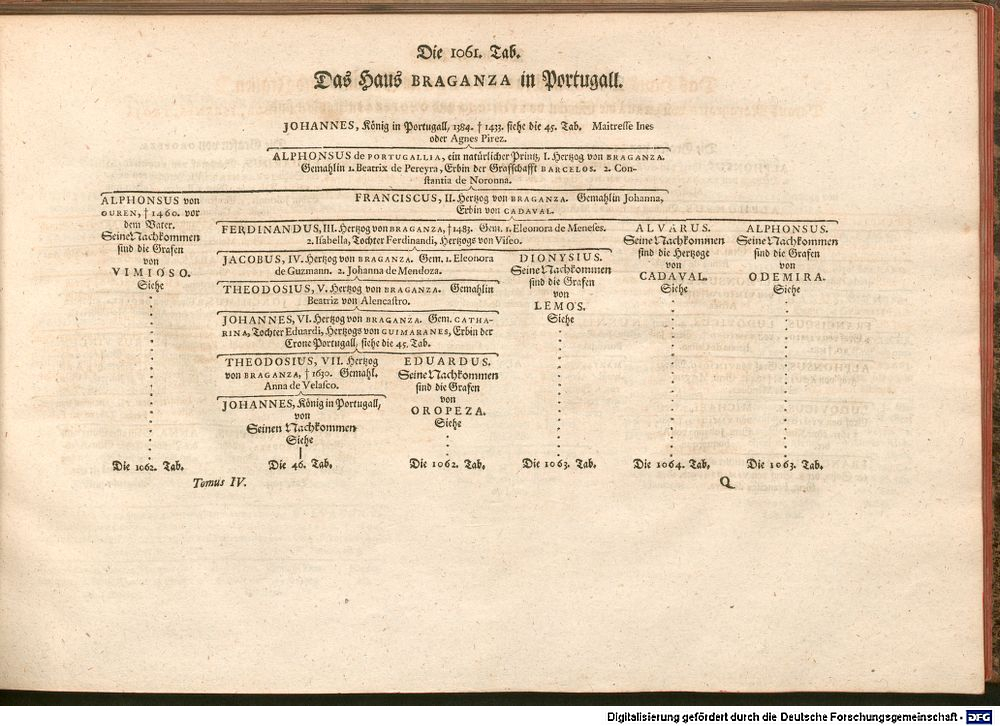 Die 1061. Tab.
Das Haus BRAGANZA in Portugall.
JOHANNES, König in Portugall, 1384. † 1433. siehe die 45. Tab. Maitresse Ines
oder Agnes Pirez.
ALPHONSUS de PORTUGALLIA, ein natürlicher Printz, I. Hertzog von BRAGANZA.
Gemahlin 1. Beatrix de Pereyra, Erbin der Graffschafft BARCELOS. 2. Con-
stantia de Noronna.
ALPHONSUS von
OUREN, † 1460. vor
dem Vater.
Seine Nachkommen
sind die Grafen
von
VIMIOSO.
Siehe
Die 1062. Tab.
FRANCISCUS, II. Hertzog von BRAGANZA. Gemahlin Johanna,
Erbin von CADAVAL.
FERDINANDUS, III. Hertzog von BRAGANZA, † 1483. Gem. 1. Eleonora de Meneses.
2. Isabella, Tochter Ferdinandi, Hertzogs von Viseo.
JACOBUS, IV. Hertzog von BRAGANZA. Gem. 1. Eleonora
de Guzmann. 2. Johanna de Mendoza.
THEODOSIUS, V. Hertzog von BRAGANZA. Gemahlin
Beatrix von Alencastro.
JOHANNES, VI. Hertzog von BRAGANZA. Gem. CATHA-
RINA, Tochter Eduardi, Hertzogs von GUIMARANES, Erbin der
Crone Portugall, siehe die 45. Tab.
THEODOSIUS, VII. Hertzog
von BRAGANZA, † 1630. Gemahl.
Anna de Velasco.
JOHANNES, König in Portugall,
von
Seinen Nachkommen
Siehe
Die 46. Tab.
EDUARDUS.
Seine Nachkommen
sind die Grafen
von
OROPEZA.
Siehe
Die 1062. Tab.
DIONYSIUS.
Seine Nachkommen
sind die Grafen
von
LEMOS.
Siehe
Die 1063. Tab.
ALVARUS.
Seine Nachkommen
sind die Hertzoge
von
CADAVAL.
Siehe
Die 1064. Tab.
ALPHONSUS.
Seine Nachkommen
sind die Grafen
von
ODEMIRA.
Siehe
Die 1063. Tab.
Tomus IV.
Q
Digitalisierung gefördert durch die Deutsche Forschungsgemeinschaft - DFG